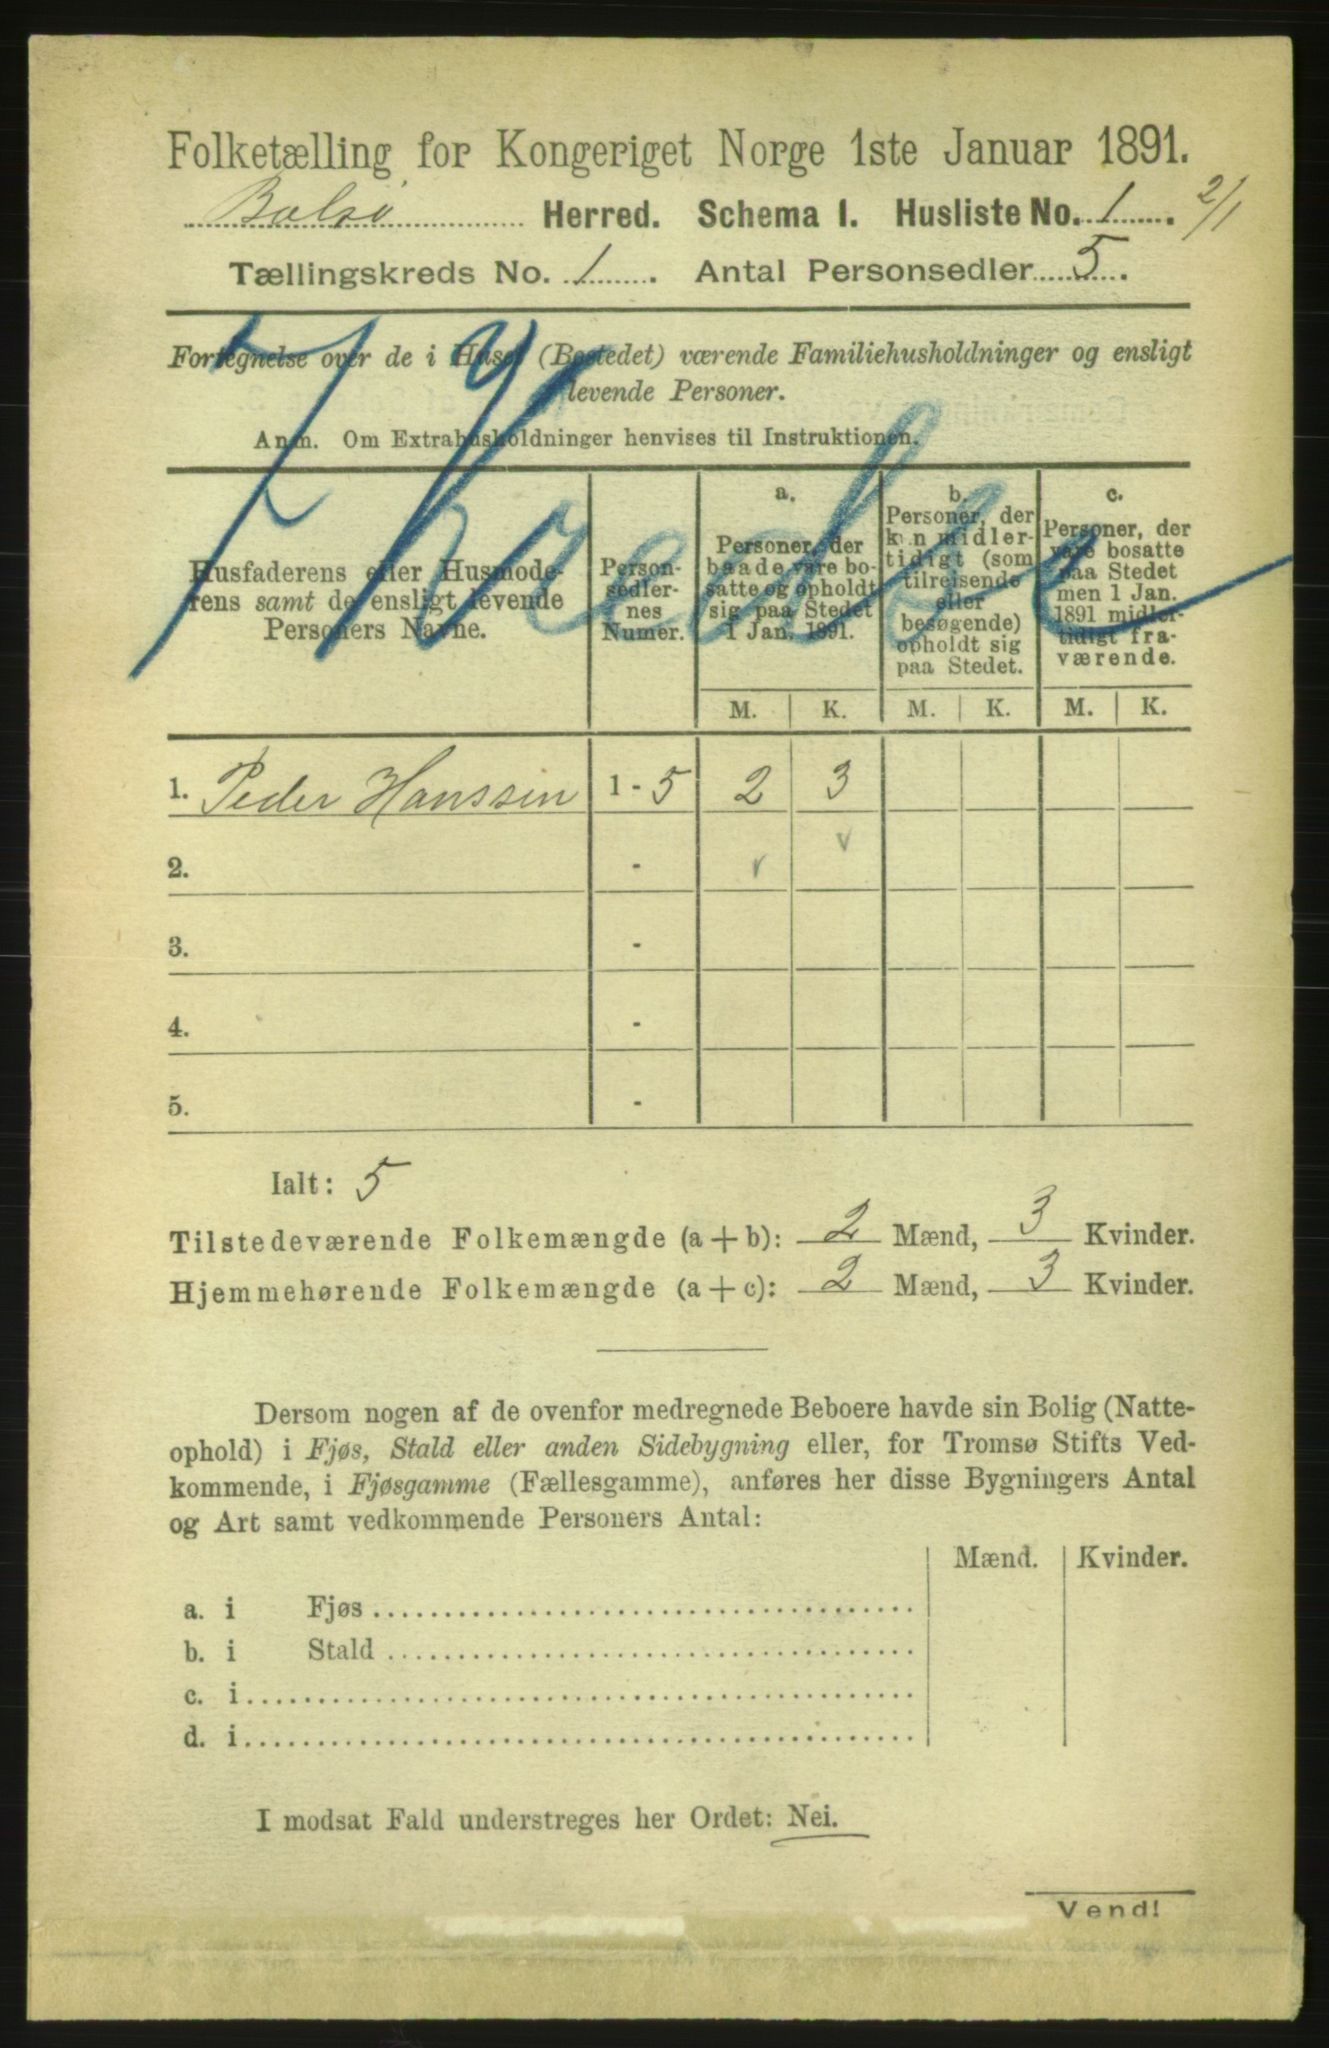 Folketælling for Kongeriget Norge 1ste Januar 1891.
Bolsø Herred. Schema I. Husliste No. 1. 2/1
Tællingskreds No. 1. Antal Personsedler 5.
Fortegnelse over de i Huset (Bostedet) værende Familiehusholdninger og ensligt
levende Personer.
Anm. Om Extrahusholdninger henvises til Instruktionen.
1 Kreds
Husfaderens eller Husmode-
rens samt de ensligt levende
Personers Navne.
Person-
sedler-
nes
Numer.
a.
Personer, der
baade vare bo-
satte og opholdt
sig paa Stedet
1 Jan. 1891.
b.
Personer, der
kun midler-
tidigt (som
tilreisende
eller
besøgende)
opholdt sig
paa Stedet.
c.
Personer, der
vare bosatte
paa Stedet
men 1 Jan.
1891 midler-
tidigt fra-
værende.
M. K. M. K. M. K.
1. Peder Hanssen 1 - 5 2 3
2. -
3. -
4. -
5. -
Ialt: 5
Tilstedeværende Folkemængde (a + b): 2 Mænd, 3 Kvinder.
Hjemmehørende Folkemængde (a + c): 2 Mænd, 3 Kvinder.
Dersom nogen af de ovenfor medregnede Beboere havde sin Bolig (Natte-
ophold) i Fjøs, Stald eller anden Sidebygning eller, for Tromsø Stifts Ved-
kommende, i Fjøsgamme (Fællesgamme), anføres her disse Bygningers Antal
og Art samt vedkommende Personers Antal:
Mænd. Kvinder.
a. i Fjøs
b. i Stald
c. i
d. i
I modsat Fald understreges her Ordet: Nei.
Vend!